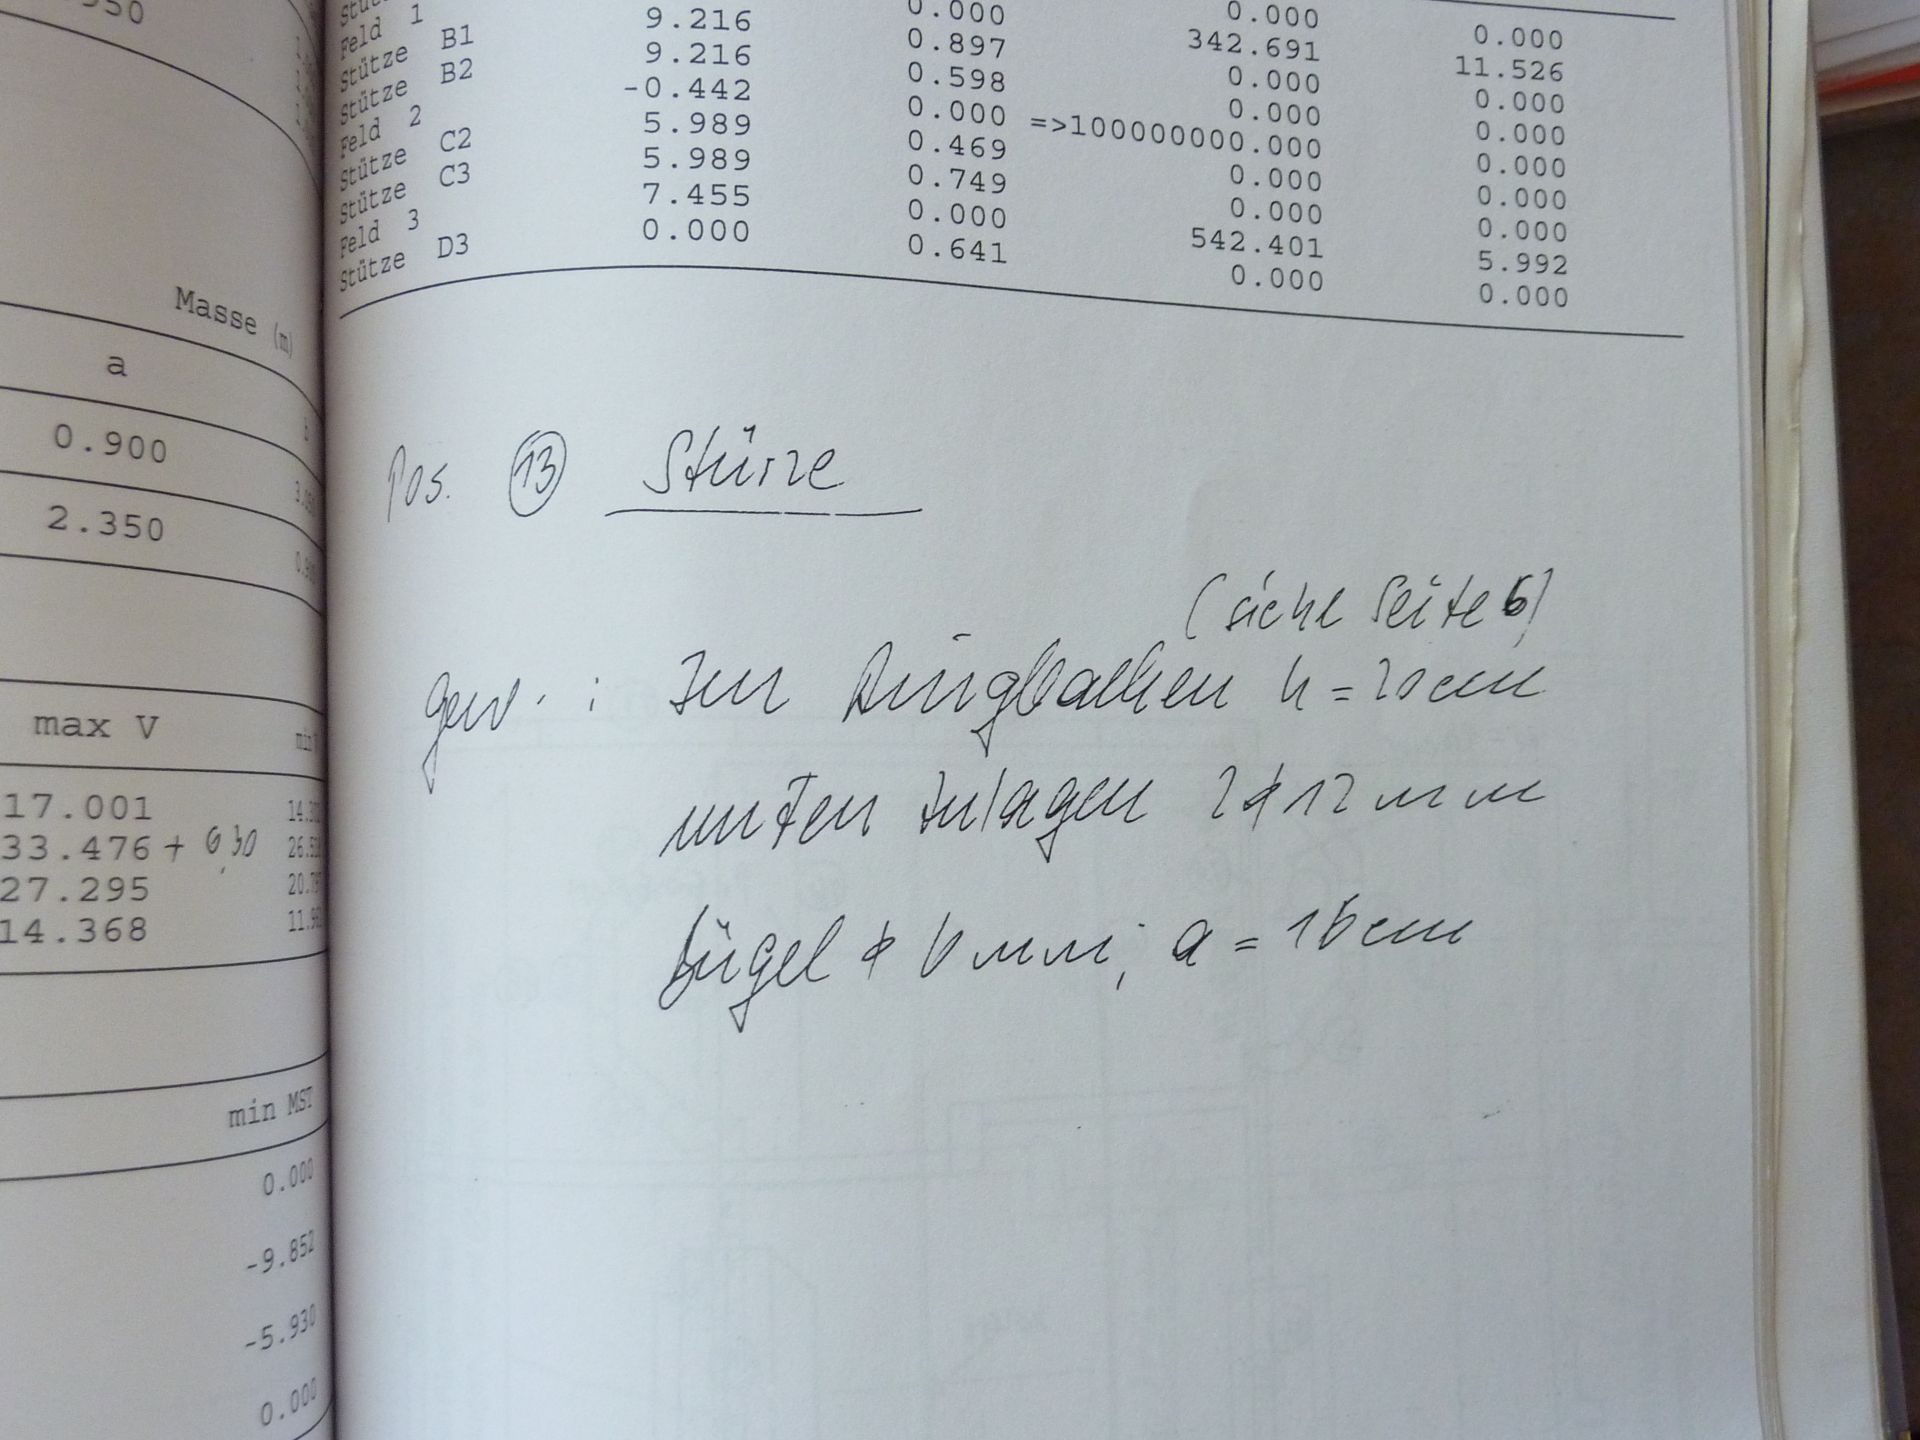 350
Masse (m)
a
0.900
2.350
max V
17.001
33.476 + 0,30
27.295
14.368
min MST
0.000
-9.852
-5.930
0.000
Feld 1 9.216 0.000 0.000 0.000
Stütze B1 9.216 0.897 342.691 11.526
Stütze B2 -0.442 0.598 0.000 0.000
Feld 2 5.989 0.000 0.000 0.000
Stütze C2 5.989 0.469 =>100000000.000 0.000
Stütze C3 7.455 0.749 0.000 0.000
Feld 3 0.000 0.000 0.000 0.000
Stütze D3 0.641 542.401 5.992
0.000 0.000
Pos. 13 Stürze
(siehe Seite 6)
gew. : Im Ringbalken h = 20cm
unten Zulagen 2 ϕ 12 mm
Bügel ϕ 6 mm; a = 16cm